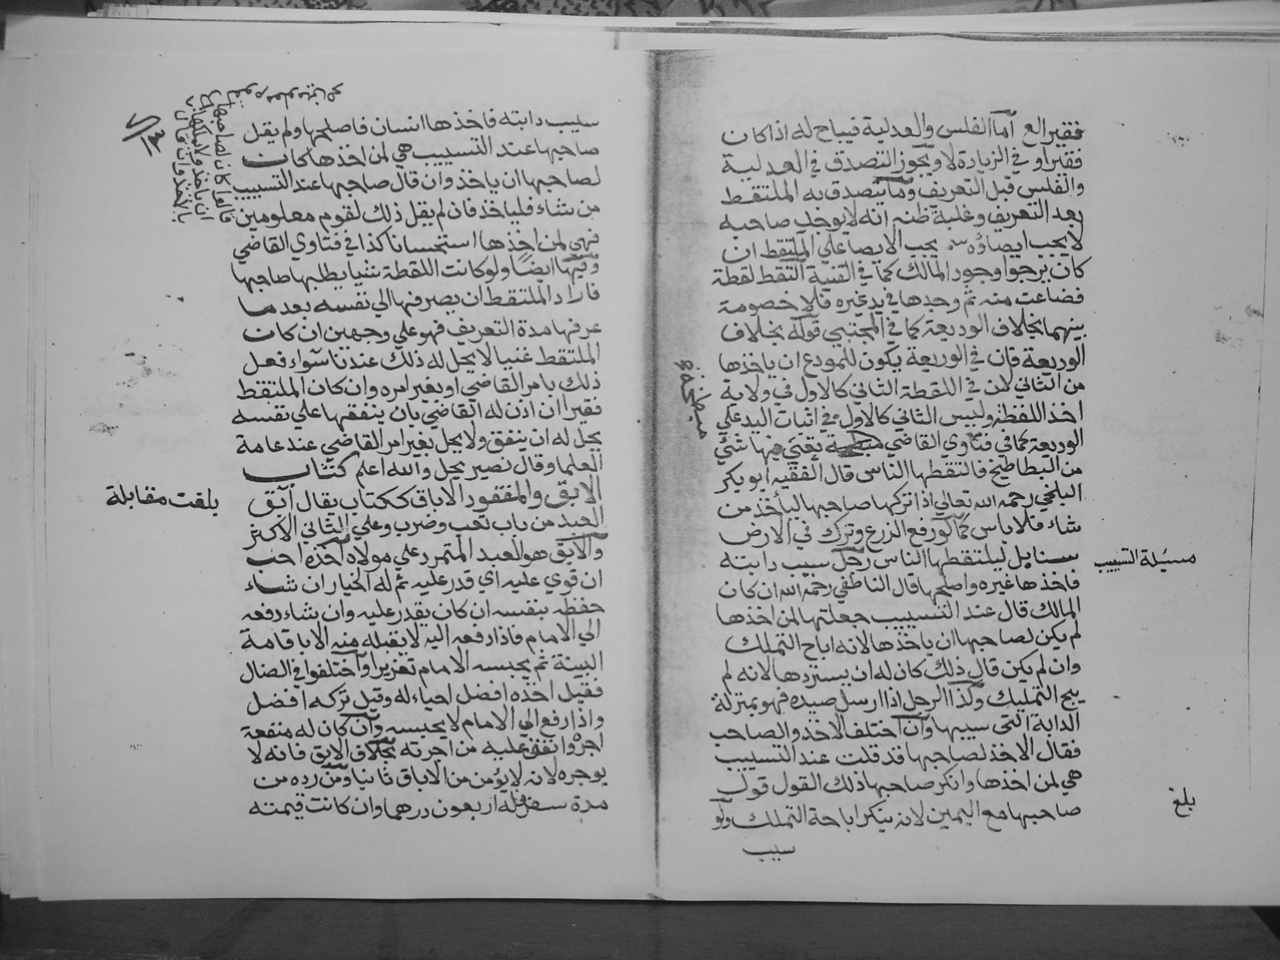 فقيرا لع اما الفلس والعدلية فيباح له اذا كان
فقيرا و في الزيادة لا ويجوز التصدق في العدلية
والفلس قبل التعريف وما تتصدق به الملتقط
بعد التعريف وغلبة ظنه انه لا يوجد صاحبه
لا يجب ايصاؤه يجب الايصا علي الملتقط ان
كان يرجوا وجود المالك كما في القنية التقط لقطة
فضاعت منه ثم وجدها في يد غيره فلا خصومة
بينهما بخلاف الوديعة كما في المجتبي قوله بخلاف
الوديعة فان في الوديعة يكون للمودع ان ياخذها
من الثاني لان في اللقطة الثاني كالاول في ولاية
اخذ اللقطة وليس الثاني كالاول في اثبات اليد علي
الوديعة كما في فتاوي القاضي بقي فيها شيء
من البطاطيخ فالتقطها الناس قال الفقيه ابو بكر
البلخي رحمه الله تعالي اذا تركها صاحبها ليأخذ من
شاء فلا باس كما لو رفع الزرع وترك في الارض
سنابل ليلتقطها الناس رجل سيب دابته
فاخذها غيره واصلحها قال الناطفي رحمه الله ان كان
المالك قال عند التسييب جعلتها لمن اخذها
لم يكن لصاحبها ان ياخذها لانه اباح التملك
وان لم يكن قال ذلك كان له ان يستردها لانه لم
يبح التمليك وكذا الرجل اذا ارسل صيده فهو بمنزلة
الدابة التي سيبها وان اختلف الاخذ والصاحب
فقال الاخذ لصاحبها قد قلت عند التسييب
هي لمن اخذها وانكر صاحبها ذلك القول قول
صاحبها مع اليمين لانه ينكر اباحة التملك ولو
سيب
مبطخة
مسئلة التسييب
بلغ
سيب دابته فاخذها انسان فاصلحها ولم يقل
صاحبها عند التسييب هي لمن اخذها كان
لصاحبها ان ياخذ وان قال صاحبها عند التسييب
من شاء فليا خذ فان لم يقل ذلك لقوم معلومين
فهي لمن اخذها استحسانا كذا في فتاوي القاضي
وفيها ايضا ولو كانت اللقطة شيا يطلبها صاحبها
فاراد الملتقط ان يصرفها الي نفسه بعد ما
عرفها مدة التعريف فهو علي وجهين ان كان
الملتقط غنيا لا يحل له ذلك عندنا سواء فعل
ذلك بامر القاضي او بغير امره وان كان الملتقط
فقيرا ان اذن له القاضي بان ينفقها علي نفسه
يحل له ان ينفق ولا يحل بغير امر القاضي عند عامة
العلما وقال نصير يحل والله اعلم كتاب
الابق والمفقود الاباق ككتاب يقال آبق
العبد من باب تعب وضرب وعلي الثاني الاكثر
والآبق هو العبد المتمرد علي مولاه اخذه احب
ان قوي عليه اي قدر عليه ثم له الخيار ان شاء
حفظه بنفسه ان كان يقدر عليه وان شاء دفعه
الي الامام فاذا دفعه اليه لا يقبله منه الا باقامة
البينة ثم يحبسه الامام تعزيرا واختلفوا في الضال
فقيل اخذه افضل احياء له وقيل تركه افضل
واذا رفع الي الامام لا يحبسه وان كان له منفعة
اجره وانفق عليه من اجرته بخلاف الابق فانه لا
يوجره لانه لا يؤمن من الاباق ثانيا ومن رده من
مدة سفر فله اربعون درهما وان كانت قيمته
بلغت مقابلة
قالوا كان لصاحبها
ان ياخذ